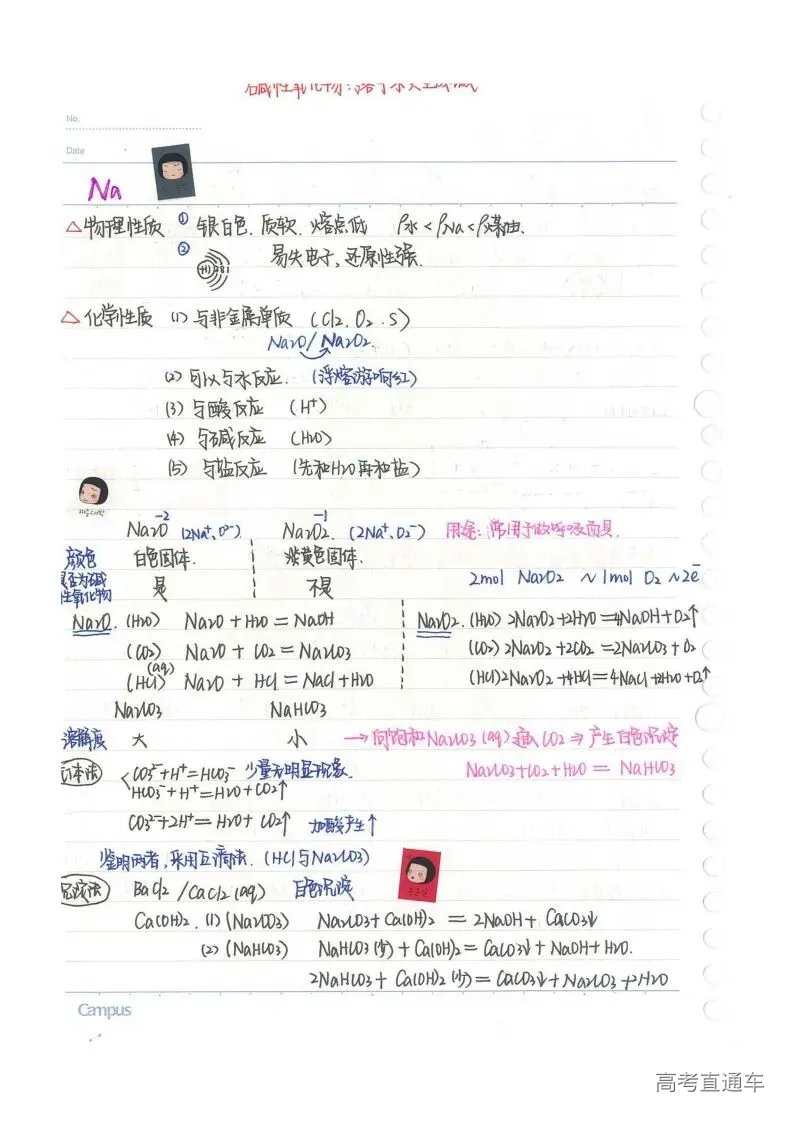 碱性氧化物:溶于水只生成碱
No.
Date
Na
△物理性质 ① 银白色、质软、熔点低 ρ水<ρNa<ρ煤油.
② +11 281 易失电子,还原性强.
△ 化学性质 (1) 与非金属单质 (Cl2、O2、S)
Na2O/Na2O2.
(2) 与水反应. (浮熔游响红)
(3) 与酸反应 (H+)
(4) 与碱反应 (H2O)
(5) 与盐反应 (先和H2O再和盐)
Na2O -2 (2Na+、O2-) Na2O2 -1 (2Na+、O2-) 用途:常用于做呼吸面具.
颜色 白色固体. 淡黄色固体.
是否为碱性氧化物 是 不是 2mol Na2O2 ~1mol O2 ~2e-
Na2O. (H2O) Na2O + H2O = NaOH Na2O2. (H2O) 2Na2O2+2H2O=4NaOH+O2↑
(CO2) Na2O + CO2 = Na2CO3 (CO2) 2Na2O2 + 2CO2 = 2Na2CO3 + O2
(HCl) (aq) Na2O + HCl = NaCl+H2O (HCl) 2Na2O2 +4HCl=4NaCl+2H2O+O2↑
Na2CO3 NaHCO3
溶解度 大 小 →向饱和Na2CO3(aq)通入CO2⇒产生白色沉淀
CO32-+H+=HCO3- 少量无明显现象. Na2CO3+CO2+H2O = NaHCO3
HCO3-+H+=H2O+CO2↑
CO32-+2H+=H2O+CO2↑ 加酸产生↑
鉴明两者,采用互滴法.(HCl与Na2CO3)
沉淀法 BaCl2/CaCl2(aq) 白色沉淀
Ca(OH)2. (1) (Na2CO3) Na2CO3+Ca(OH)2 = 2NaOH + CaCO3↓
(2) (NaHCO3) NaHCO3(少)+Ca(OH)2=CaCO3↓+NaOH+H2O.
2NaHCO3+Ca(OH)2(少)=CaCO3↓+Na2CO3+2H2O
Campus
高考直通车